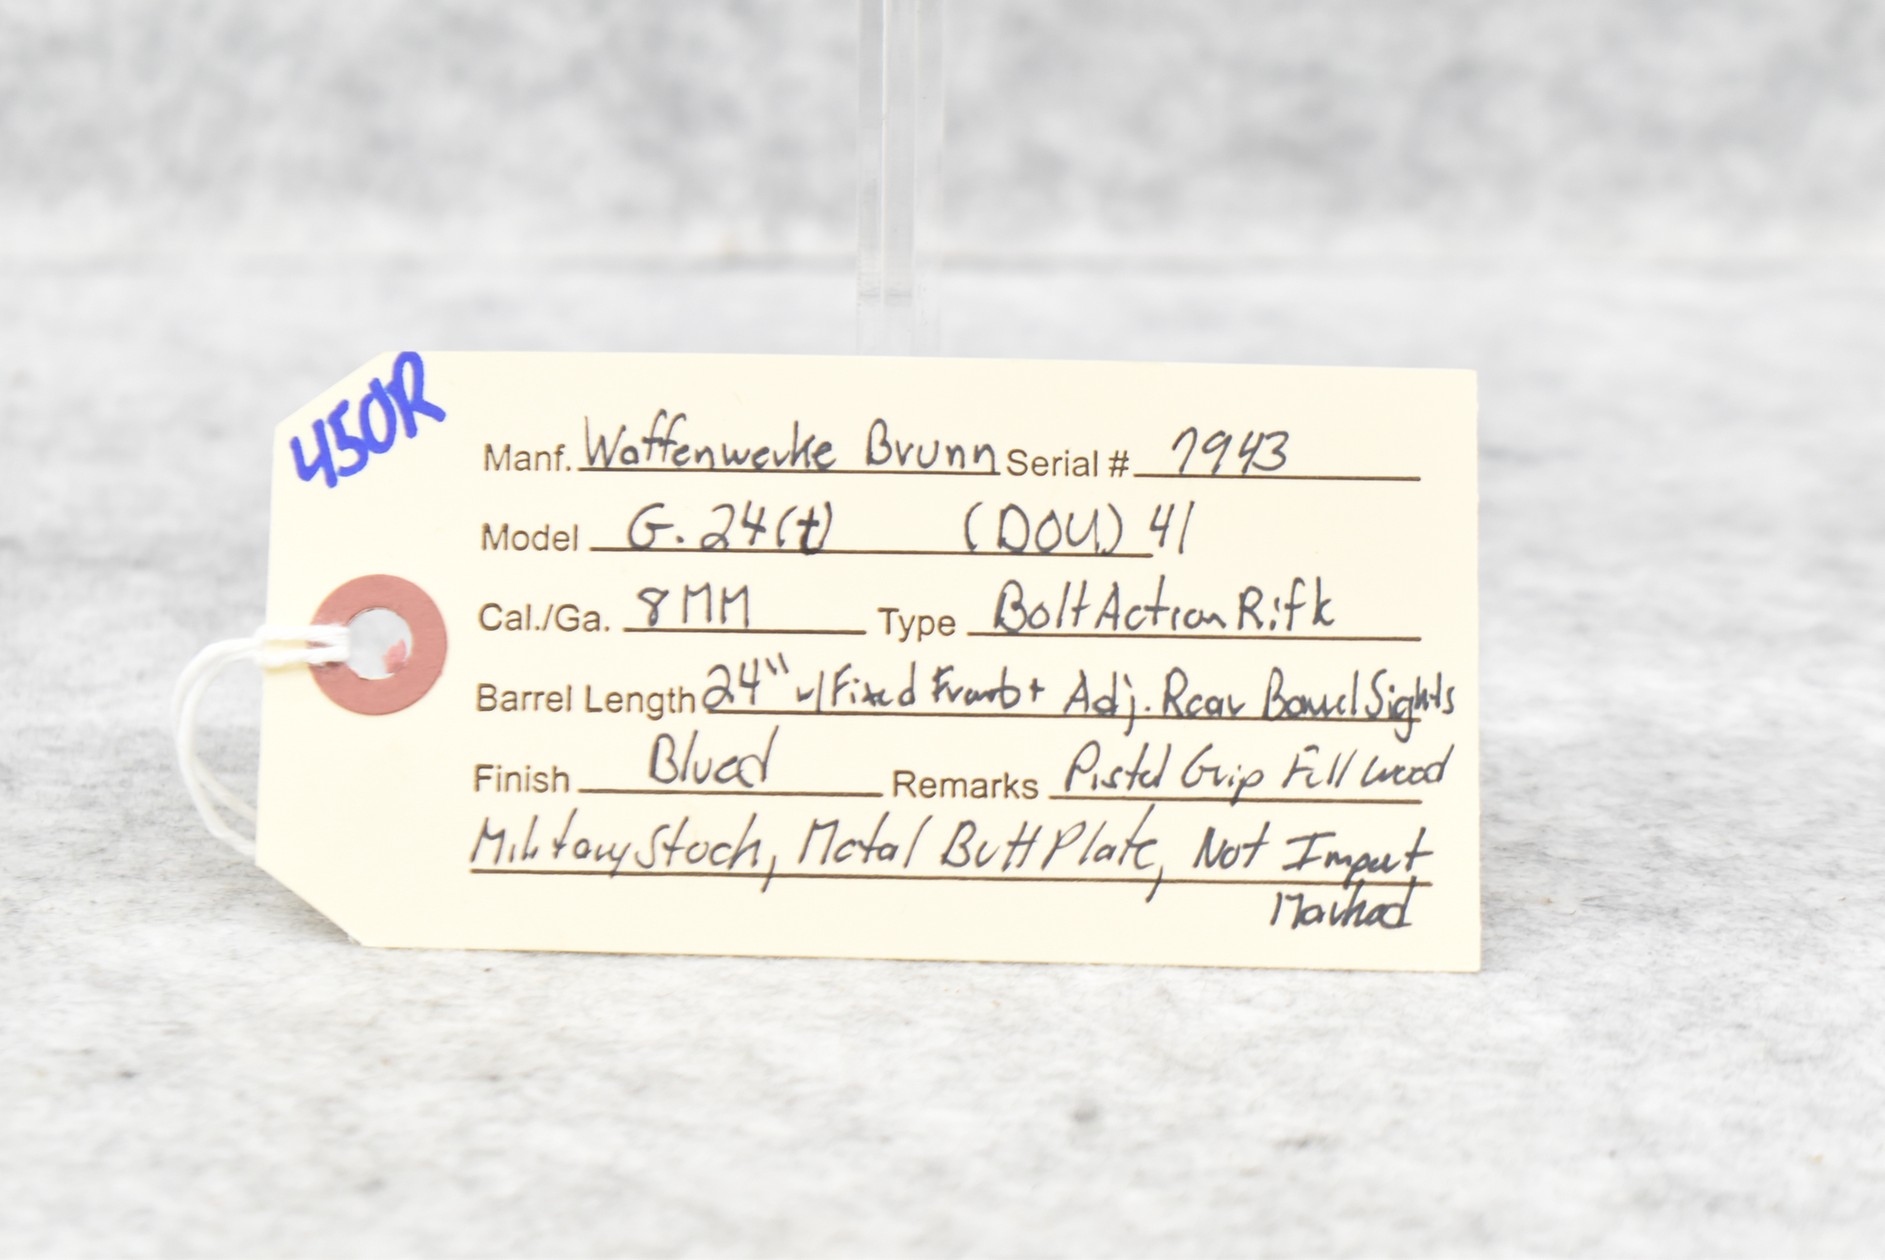 450R
Manf. Waffenwerke Brunn Serial # 7943
Model G.24(t) (DOU) 41
Cal./Ga. 8MM Type Bolt Action Rifle
Barrel Length 24" w/Fixed Front + Adj. Rear Barrel Sights
Finish Blued Remarks Pistol Grip Full Wood
Military Stock, Metal Butt Plate, Not Import
Marked